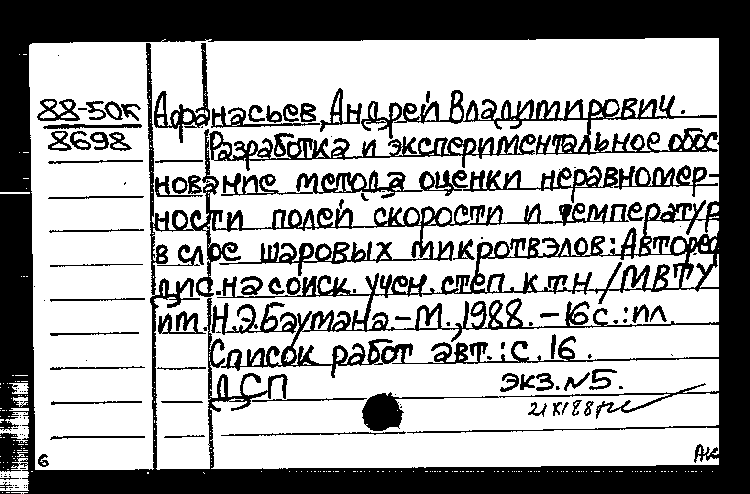 88-50к
8698
Афанасьев, Андрей Владимирович.
Разработка и экспериментальное обос-
нование метода оценки неравномер-
ности полей скорости и температур
в слое шаровых микротвэлов: Автореф
дис. на соиск. учен. степ. к.т.н. / МВТУ
им. Н.Э. Баумана. - М., 1988. - 16 с. : ил.
Список работ авт. : с. 16.
ДСП экз. №5.
21 XI 88
6